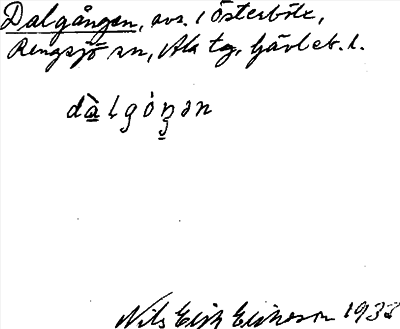 Dalgången, avs. i Österböle,
Rengsjö sn, Ala tg, Gävleb. l.
dàlgóŋən
Nils Erik Erikeson 1933